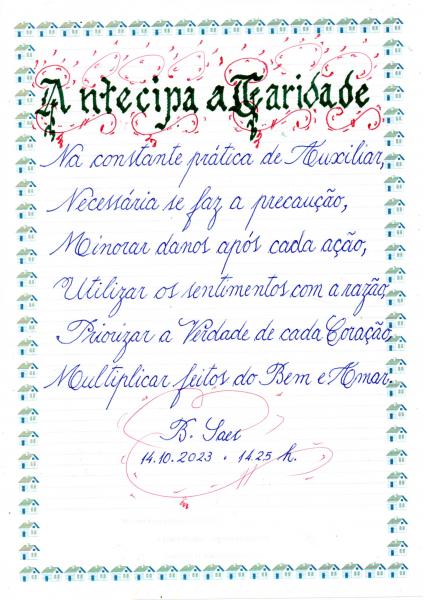 Antecipa a Caridade
Na constante prática de Auxiliar,
Necessária se faz a precaução,
Minorar danos após cada ação,
Utilizar os sentimentos com a razão,
Priorizar a Verdade de cada Coração
Multiplicar feitos do Bem e Amar.
B. Saes
14.10.2023 . 14.25 h.